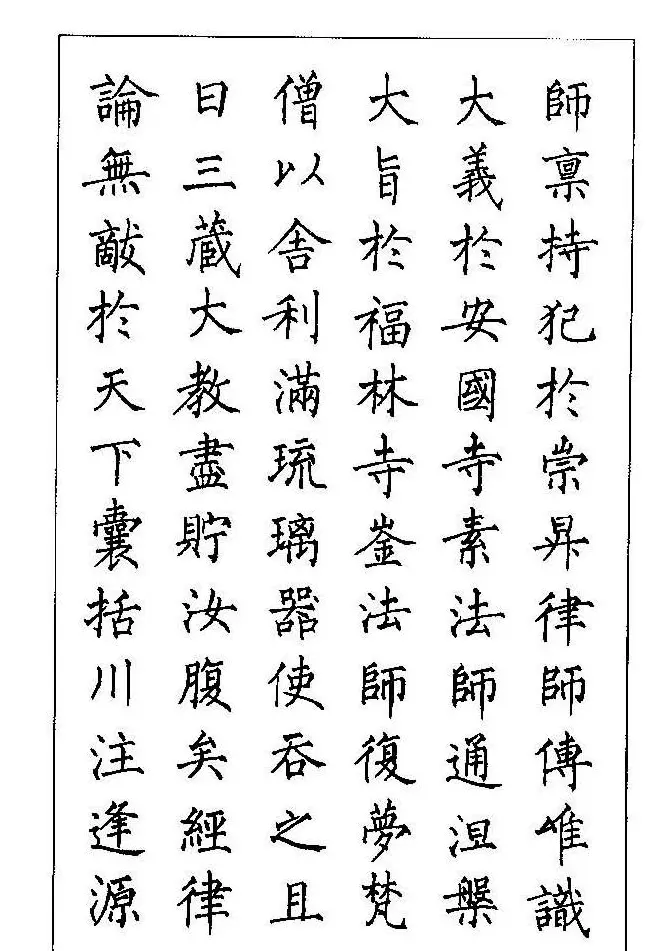 師禀持犯於崇昇律師傳唯識
大義於安國寺素法師通涅槃
大旨於福林寺崟法師復夢梵
僧以舍利滿琉璃器使吞之且
曰三藏大教盡貯汝腹矣經律
論無敵於天下囊括川注逢源